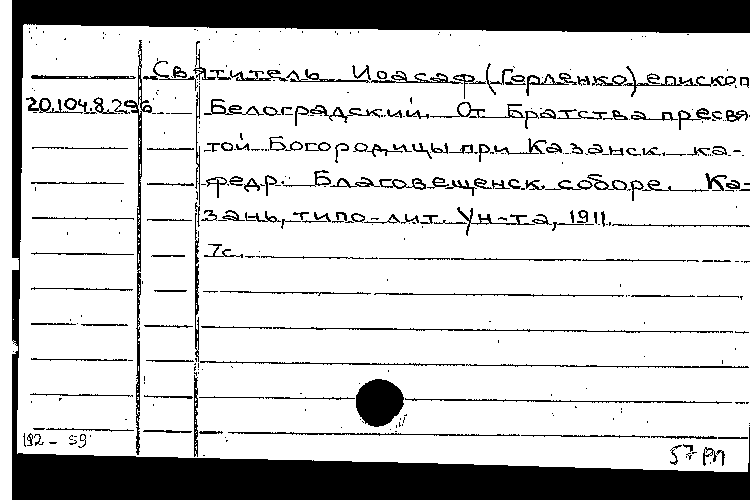 Святитель Иоасаф (Горленко) епископ
20.104.8.296 Белоградский. От Братства пресвя-
той Богородицы при Казанск. ка-
федр. Благовещенск. соборе. Ка-
зань, типо-лит. Ун-та, 1911.
7с.
192 - 59
57 РЛ